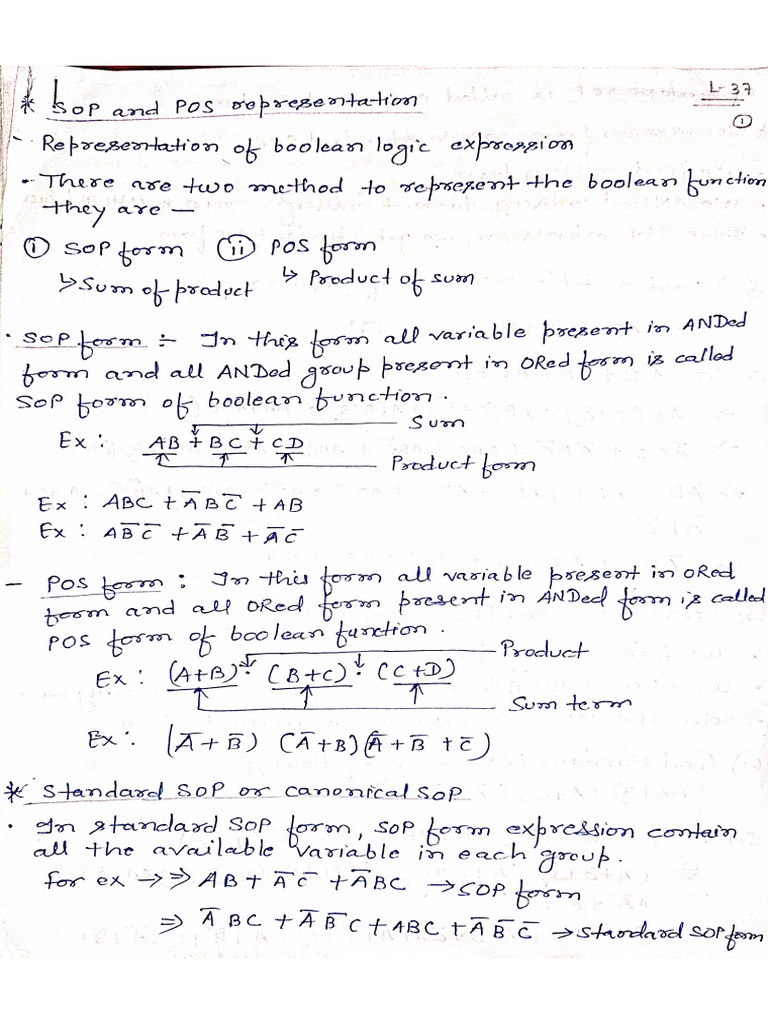 L-37
* SOP and POS representation
①
- Representation of boolean logic expression
- There are two method to represent the boolean function
they are —
ⓘ SOP form ⓘⓘ POS form
↳ Sum of product ↳ Product of sum
· SOP form :- In this form all variable present in ANDed
form and all ANDed group present in ORed form is called
SOP form of boolean function.
Sum
Ex : AB + BC + CD
Product form
Ex : ABC + A̅BC̅ + AB
Ex : AB̅C̅ + A̅B̅ + A̅C̅
- POS form : In this form all variable present in ORed
form and all ORed form present in ANDed form is called
POS form of boolean function.
Product
Ex : (A+B) · (B+C) · (C+D)
Sum term
Ex : (A̅+B̅) (A̅+B) (A̅+B̅+C̅)
* Standard SOP or canonical SOP
· In standard SOP form, SOP form expression contain
all the available variable in each group.
for ex → ⇒ AB + A̅C̅ + A̅BC → SOP form
⇒ A̅BC + A̅B̅C + ABC + A̅B̅C̅ → Standard SOP form